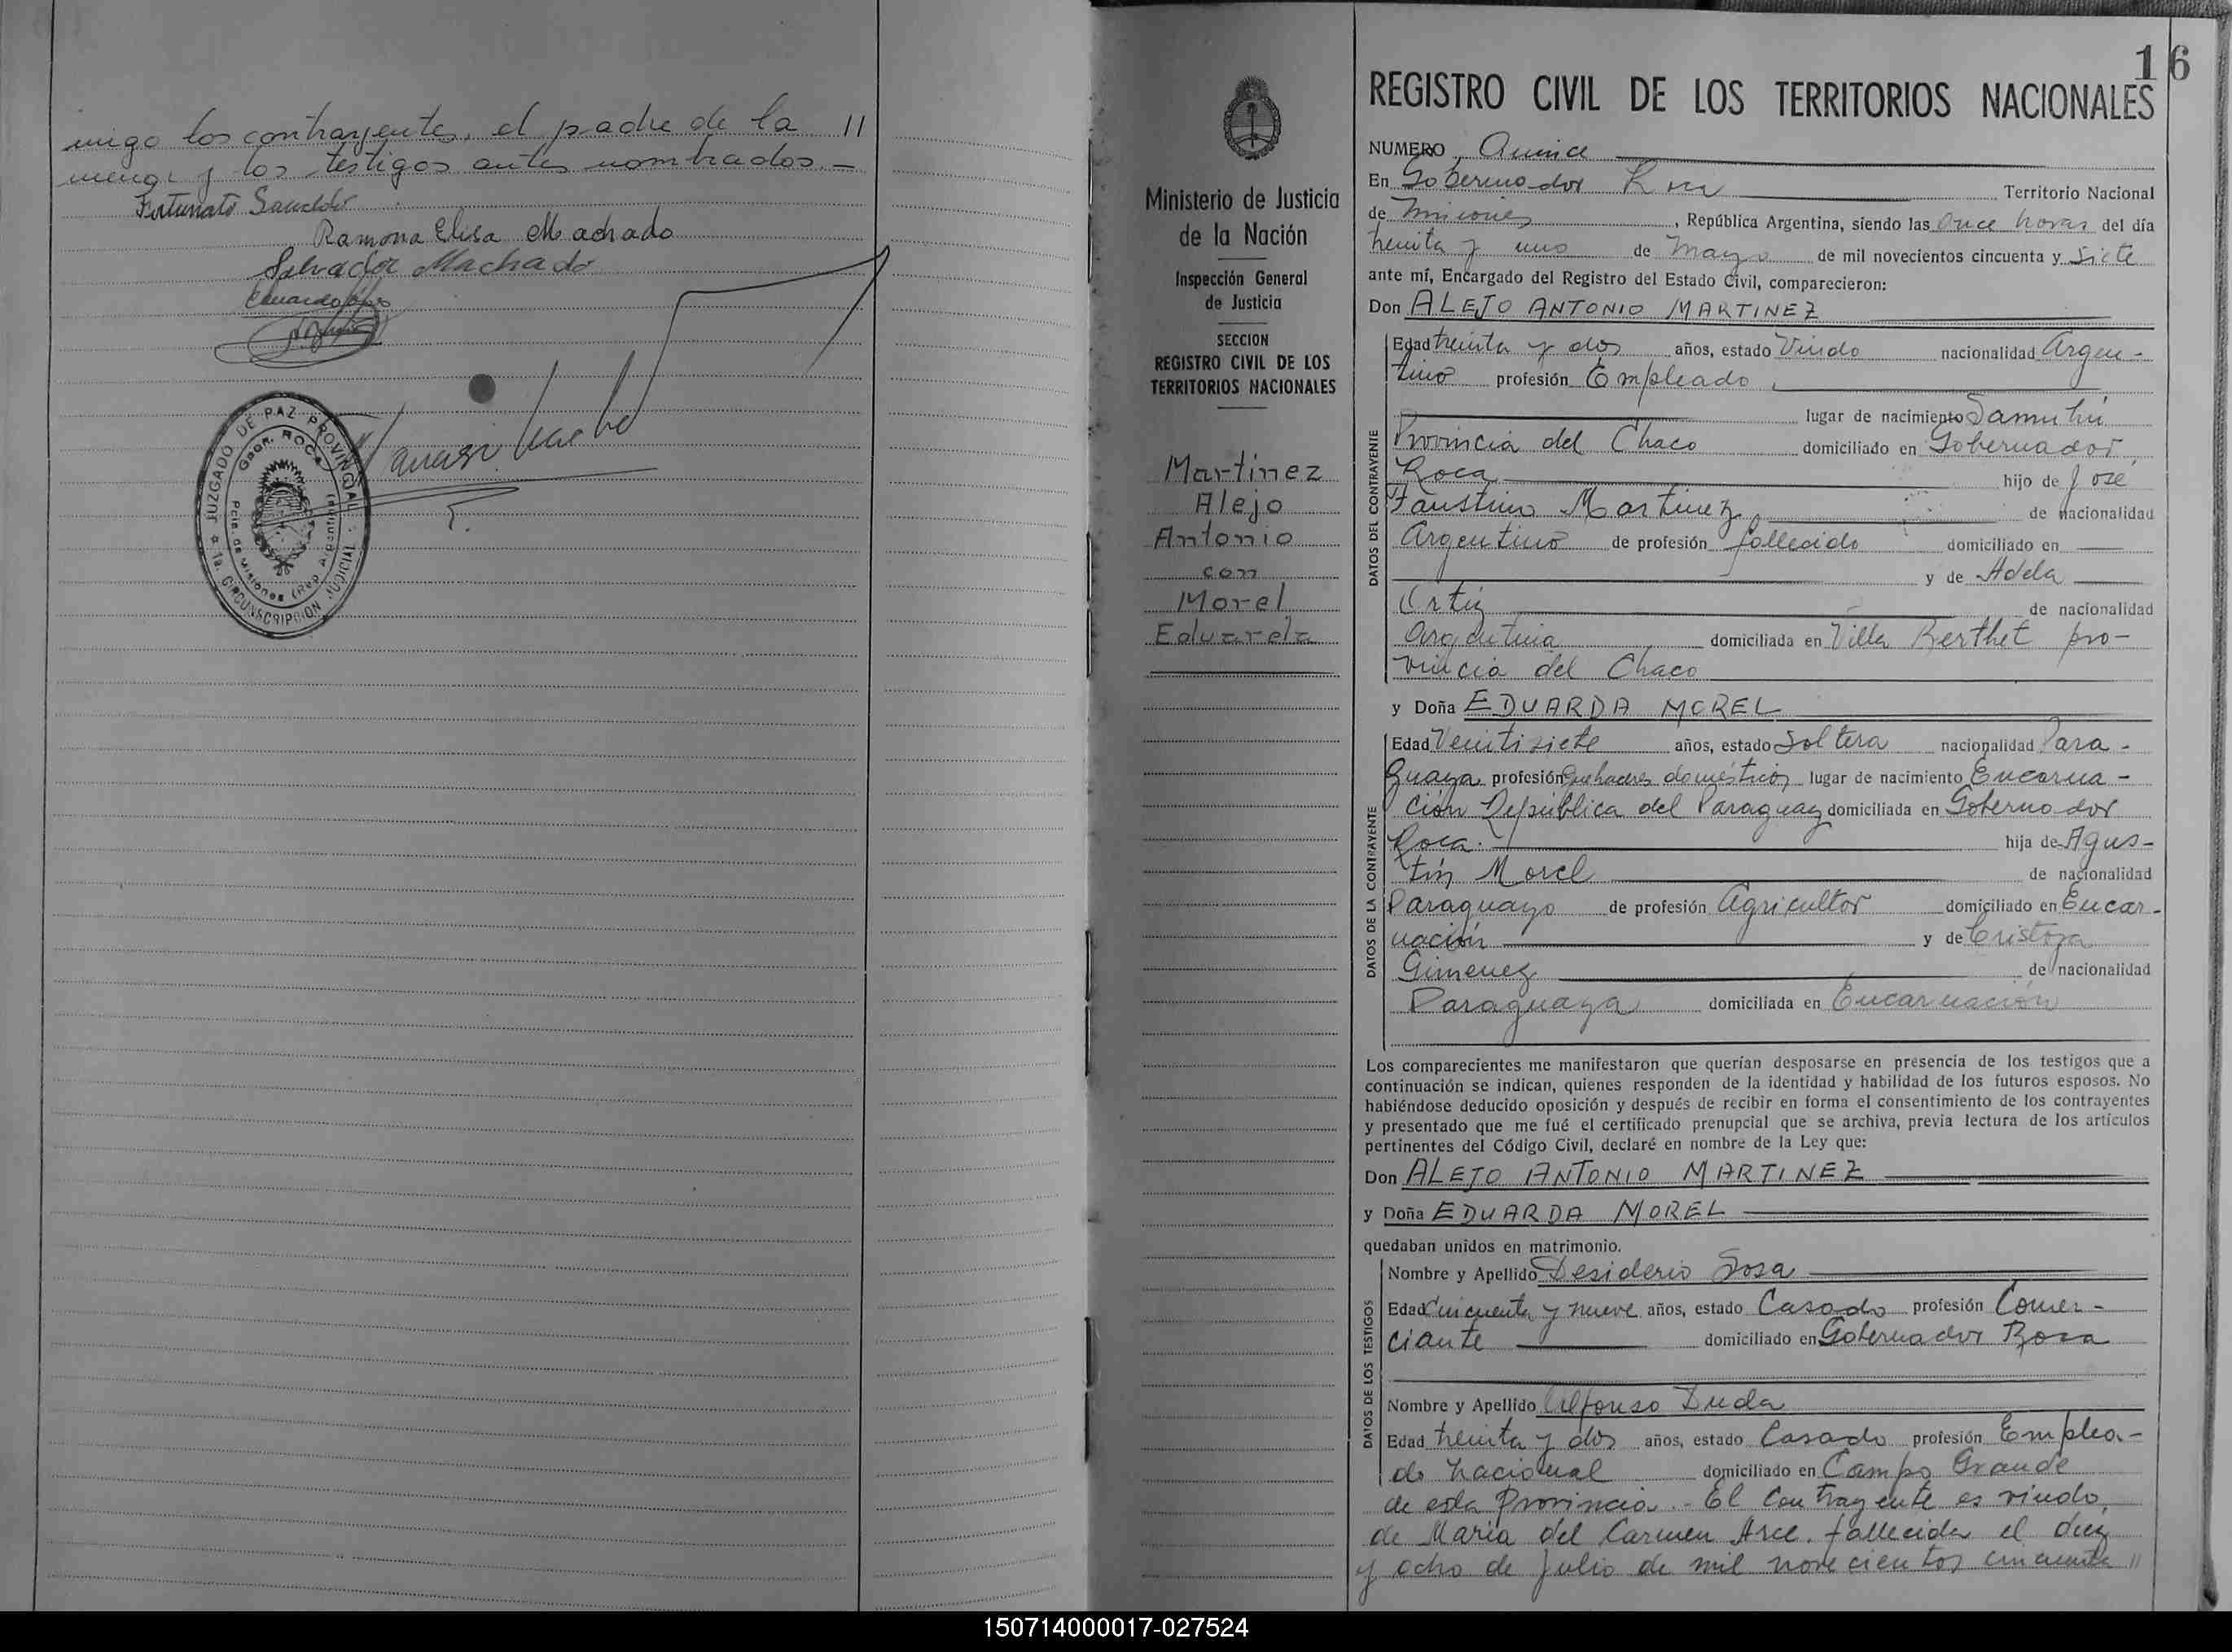 migo los contrayentes, el padre de la //
menor y los testigos antes nombrados.—
Fortunato
Ramona Elisa Machado
Salvador Machado
Eduardo
JUZGADO DE PAZ PROVINCIAL
1a. CIRCUNSCRIPCION JUDICIAL
Gdor. ROCA
Pcia. de Misiones (Rep. Argentina)
16
REGISTRO CIVIL DE LOS TERRITORIOS NACIONALES
Ministerio de Justicia
de la Nación
Inspección General
de Justicia
SECCION
REGISTRO CIVIL DE LOS
TERRITORIOS NACIONALES
Martinez
Alejo
Antonio
con
Morel
Eduarda
NUMERO Quince
En Gobernador Roca Territorio Nacional
de Misiones, República Argentina, siendo las once horas del día
treinta y uno de Mayo de mil novecientos cincuenta y siete
ante mí, Encargado del Registro del Estado Civil, comparecieron:
Don ALEJO ANTONIO MARTINEZ
DATOS DEL CONTRAYENTE
Edad treinta y dos años, estado Viudo nacionalidad Argen-
tino profesión Empleado
lugar de nacimiento Samuhú
Provincia del Chaco domiciliado en Gobernador
Roca hijo de José
Faustino Martinez de nacionalidad
Argentino de profesión fallecido domiciliado en
y de Adela
Ortiz de nacionalidad
Argentina domiciliada en Villa Berthet pro-
vincia del Chaco
y Doña EDUARDA MOREL
DATOS DE LA CONTRAYENTE
Edad Veintisiete años, estado Soltera nacionalidad Para-
guaya profesión quehaceres domésticos lugar de nacimiento Encarna-
ción República del Paraguay domiciliada en Gobernador
Roca. hija de Agus-
tín Morel de nacionalidad
Paraguayo de profesión Agricultor domiciliado en Encar-
nación y de
Gimenez de nacionalidad
Paraguaya domiciliada en Encarnación
Los comparecientes me manifestaron que querían desposarse en presencia de los testigos que a
continuación se indican, quienes responden de la identidad y habilidad de los futuros esposos. No
habiéndose deducido oposición y después de recibir en forma el consentimiento de los contrayentes
y presentado que me fué el certificado prenupcial que se archiva, previa lectura de los artículos
pertinentes del Código Civil, declaré en nombre de la Ley que:
Don ALEJO ANTONIO MARTINEZ
y Doña EDUARDA MOREL
quedaban unidos en matrimonio.
DATOS DE LOS TESTIGOS
Nombre y Apellido Desiderio Sosa
Edad Cincuenta y nueve años, estado Casado profesión Comer-
ciante domiciliado en Gobernador Roca
Nombre y Apellido Alfonso Duda
Edad treinta y dos años, estado Casado profesión Emplea-
do nacional domiciliado en Campo Grande
de esta Provincia.- El Contrayente es viudo
de María del Carmen Arce, fallecida el diez
y ocho de julio de mil novecientos cincuenta //
150714000017-027524